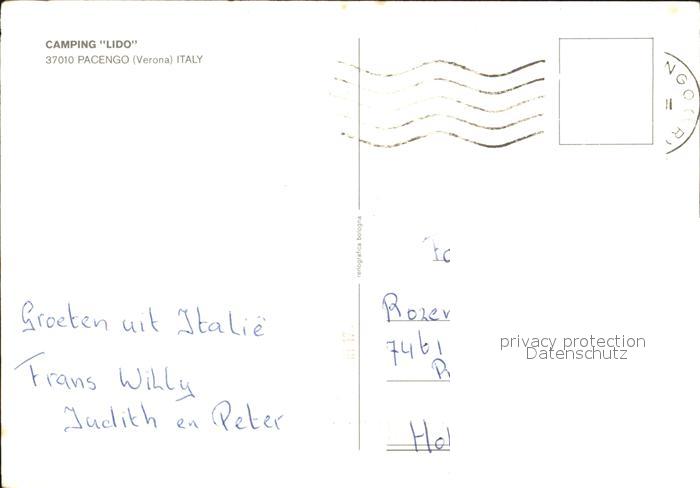 CAMPING "LIDO"
37010 PACENGO (Verona) ITALY
rotografica bologna
Groeten uit Italië
Frans Willy
Judith en Peter
7461
privacy protection
Datenschutz